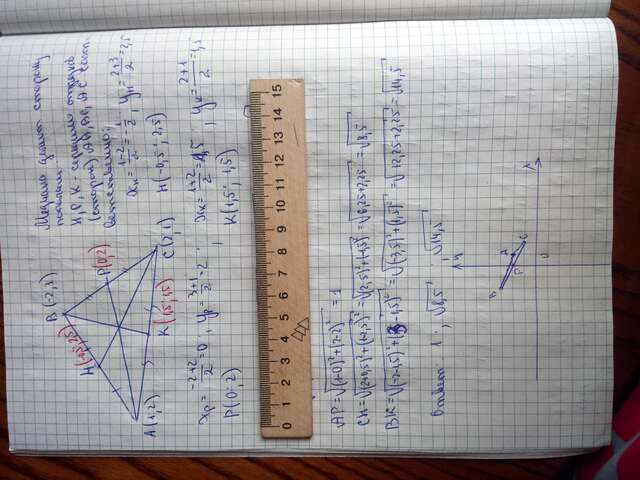 Медиана делит сторону
пополам.
H, P, K - середины отрезков
(сторон) AB, BC, AC соот-
ветственно;
xн = 1-2/2 = -1/2 ; yн = 2+3/2 = 2,5
H(-0,5; 2,5)
B(-2;3)
H(-0,5; 2,5)
P(0;2)
A(1;2)
C(2;1)
K(1,5; 1,5)
xp = -2+2/2 = 0 ; yp = 3+1/2 = 2 ; xк = 1+2/2 = 1,5 ; yк = 2+1/2 = 1,5
P(0; 2)
K(1,5; 1,5)
0 1 2 3 4 5 6 7 8 9 10 11 12 13 14 15
AP = √(1-0)²+(2-2)² = 1
CH = √(2+0,5)²+(1-2,5)² = √(2,5)²+(1,5)² = √6,25+2,25 = √8,5
BK = √(-2-1,5)²+(3-1,5)² = √(3,5)²+(1,5)² = √12,25+2,25 = √14,5
Ответ: 1 ; √8,5 ; √14,5
y
B
P
A
C
0